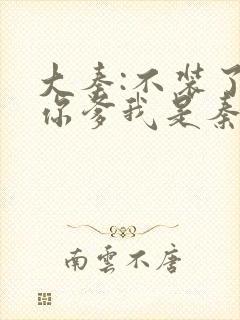 大秦:不装了
你爹我是秦
南雲不唐